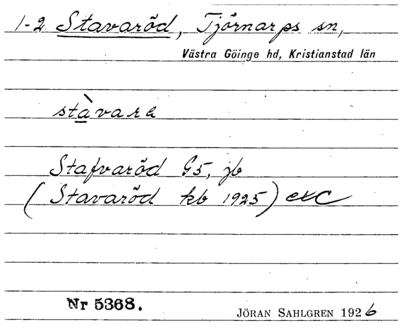 1-2 Stavaröd, Tjörnarps sn,
Västra Göinge hd, Kristianstad län
stàvarə
Stafvaröd G5, jb
(Stavaröd kb 1925) etc
Nr 5368.
JÖRAN SAHLGREN 1926